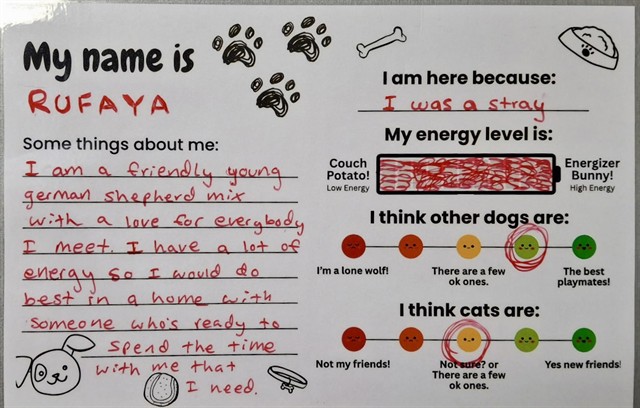 My name is
RUFAYA
Some things about me:
I am a friendly young
german shepherd mix
with a love for everybody
I meet. I have a lot of
energy so I would do
best in a home with
someone who's ready to
spend the time
with me that
I need.
I am here because:
I was a stray
My energy level is:
Couch
Potato!
Low Energy
Energizer
Bunny!
High Energy
I think other dogs are:
I'm a lone wolf!
There are a few
ok ones.
The best
playmates!
I think cats are:
Not my friends!
Not sure? or
There are a few
ok ones.
Yes new friends!